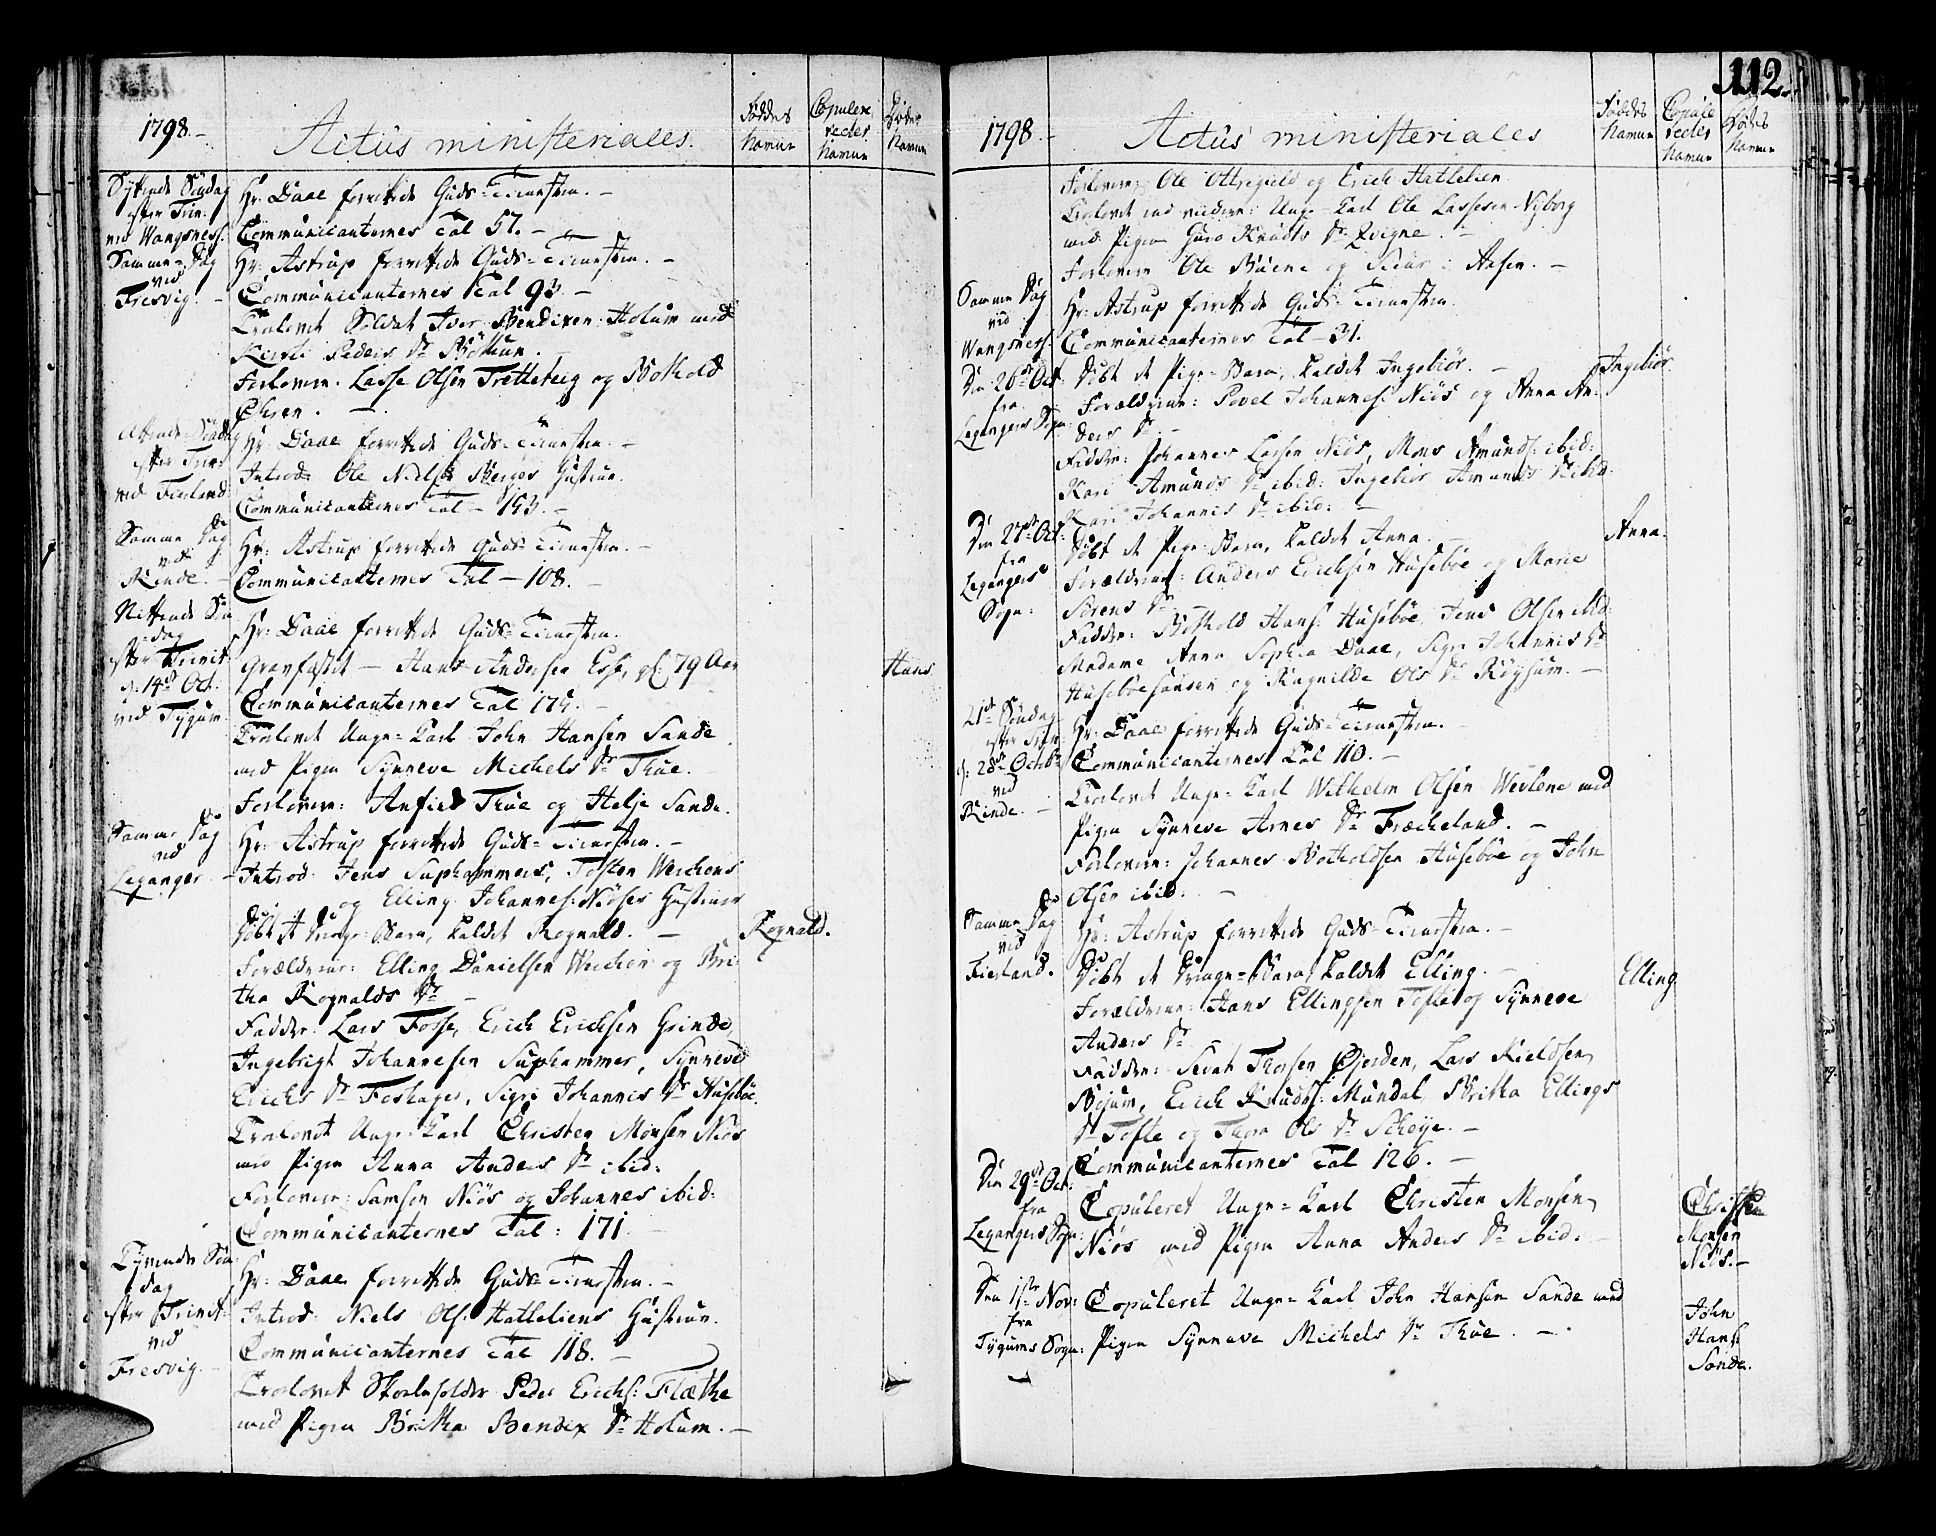 1798.-
Actus ministeriales.
Føddes Navne
Copuleredes Navne
Dødes Navne
Syttende Søndag efter Trin: ved Wangsness.
Hr: Daae forrettede Guds-Tienesten. -
Communicanternes Tal 57. -
Samme Dag ved Fresvig. -
Hr: Astrup forrettede Guds-Tienesten. -
Communicanternes Tal 93. -
Trolovet Soldat Iver Bendixen Holum med
Kirsti Peders Dr
Forlovere: Lasse Olsen Tretteteig og Bothold
Ohren. -
Søndag efter Trin: ved Fierland
Hr: Daae forrettede Guds-Tienesten. -
Introd: Ole Nielsen Berges Hustrue.
Communicanternes Tal - 153. -
Samme Dag ved Rinde. -
Hr: Astrup forrettede Guds-Tienesten. -
Communicanternes Tal - 108. -
Nittende Søndag efter Trinit: d: 14de Oct. ved Tygum.
Hr: Daae forrettede Guds-Tienesten.
Gravfæstet - Hans Andersen Esse, gl: 79 Aar
Hans
Communicanternes Tal 175. -
Trolovet Unge-Karl John Hansen Sande
med Pigen Synneve Michels Dr Thue.
Forlovere: Anfind Thue og Helje Sande.
Samme Dag ved Leganger. -
Hr: Astrup forrettede Guds-Tienesten. -
Introd: Jens Suphammers, Tosten Werchens
og Elling Johannes: Niøses Hustruer
Døbt et Drenge-Barn, kaldet Rognald. -
Rognald.
Forældrene: Elling Danielsen Werchen og Bri-
tha Rognalds Dr -
Fadder: Lars Fosse, Erich Erichsen Grinde,
Ingebrigt Johannesen Suphammer, Synneve
Erichs Dr Foshagen, Sigri Johannis Dr Husebøe.
Trolovet Unge-Karl Christen Monsen Niøs
med Pigen Anna Anders Dr ibid:
Forlovere: Samson Niøs og Johannes ibid:
Communicanternes Tal: 171
Tyvende Søndag efter Trinit: ved Fresvig. -
Hr: Daae forrettede Guds-Tienesten. -
Introd: Niels Ols: Hatleliens Hustrue.
Communicanternes Tal 118. -
Trolovet Peder Erichs: Flæthe
med Pigen Britha Bendix Dr Holum. -
112.
1798. -
Actus ministeriales
Føddes Navne
Copuleredes Navne
Dødes Navne
Forlovere: Ole og Erich Hatlelien.
Trolovet Unge-Karl Ole Lassesen Nyborg
med Pigen Guro Knuds Dr
Forlovere Ole og i Aasen. -
Samme Dag ved Wangsness.
Hr: Astrup forrettede Guds-Tienesten.
Communicanternes Tal - 31.
Den 26de Oct. fra Legangers Sogn
Døbt et Pige-Barn, kaldet Ingebiør. -
Ingebiør
Forældrene: Povel Johannes: Niøs og Anna An-
ders Dr. -
Fadder: Johannes Larsen Niøs, Mons Amunds: ibid:
Kari Amunds Dr ibid: Ingebiør Amunds Dr ibid:
Kari Johannis Dr ibid: -
Den 27de Oct: fra Legangers Sogn:
Døbt et Pige-Barn, kaldet Anna. -
Anna.
Forældrene: Anders Erichsen Husebøe og Marie
Sørens Dr
Fadder: Bothold Hans: Husebøe, Jens Olsen ibid:
Madame Anna Sophia Daae, Sigri Johannis Dr
Husebøe og Ragnilde Ols Dr Røysum. -
21de Søndag efter Trin: d: 28de Octobr ved Rinde. -
Hr: Daae forrettede Guds-Tienesten. -
Communicanternes Tal 110. -
Trolovet Unge-Karl Wilhelm Olsen med
Pigen Synneve Arnes Dr Fræcheland. -
Forlovere: Johannes Botholdsen Husebøe og John
Olsen ibid: -
Samme Dag ved Fierland.
Hr: Astrup forrettede Guds-Tienesten. -
Døbt et Drenge-Barn, kaldet Elling. -
Elling
Forældrene: Hans Ellingsen Tofte og Synneve
Anders Dr
Fadder: Thorsen Øjorden, Lars Kieldsen
Bojum, Erich Knuds: Mundal, Britha Ellings
Dr Tofte og Thora Ols Dr Scheje. -
Communicanternes Tal 126. -
Den 29de Oct. fra Legangers Sogn:
Copuleret Unge-Karl Christen Monsen
Niøs med Pigen Anna Anders Dr ibid: -
Christen Monsen Niøs. -
Den 1ste Nov: fra Tygums Sogn:
Copuleret Unge-Karl John Hansen Sande med
Pigen Synneve Michels Dr Thue. -
John Hans: Sande.